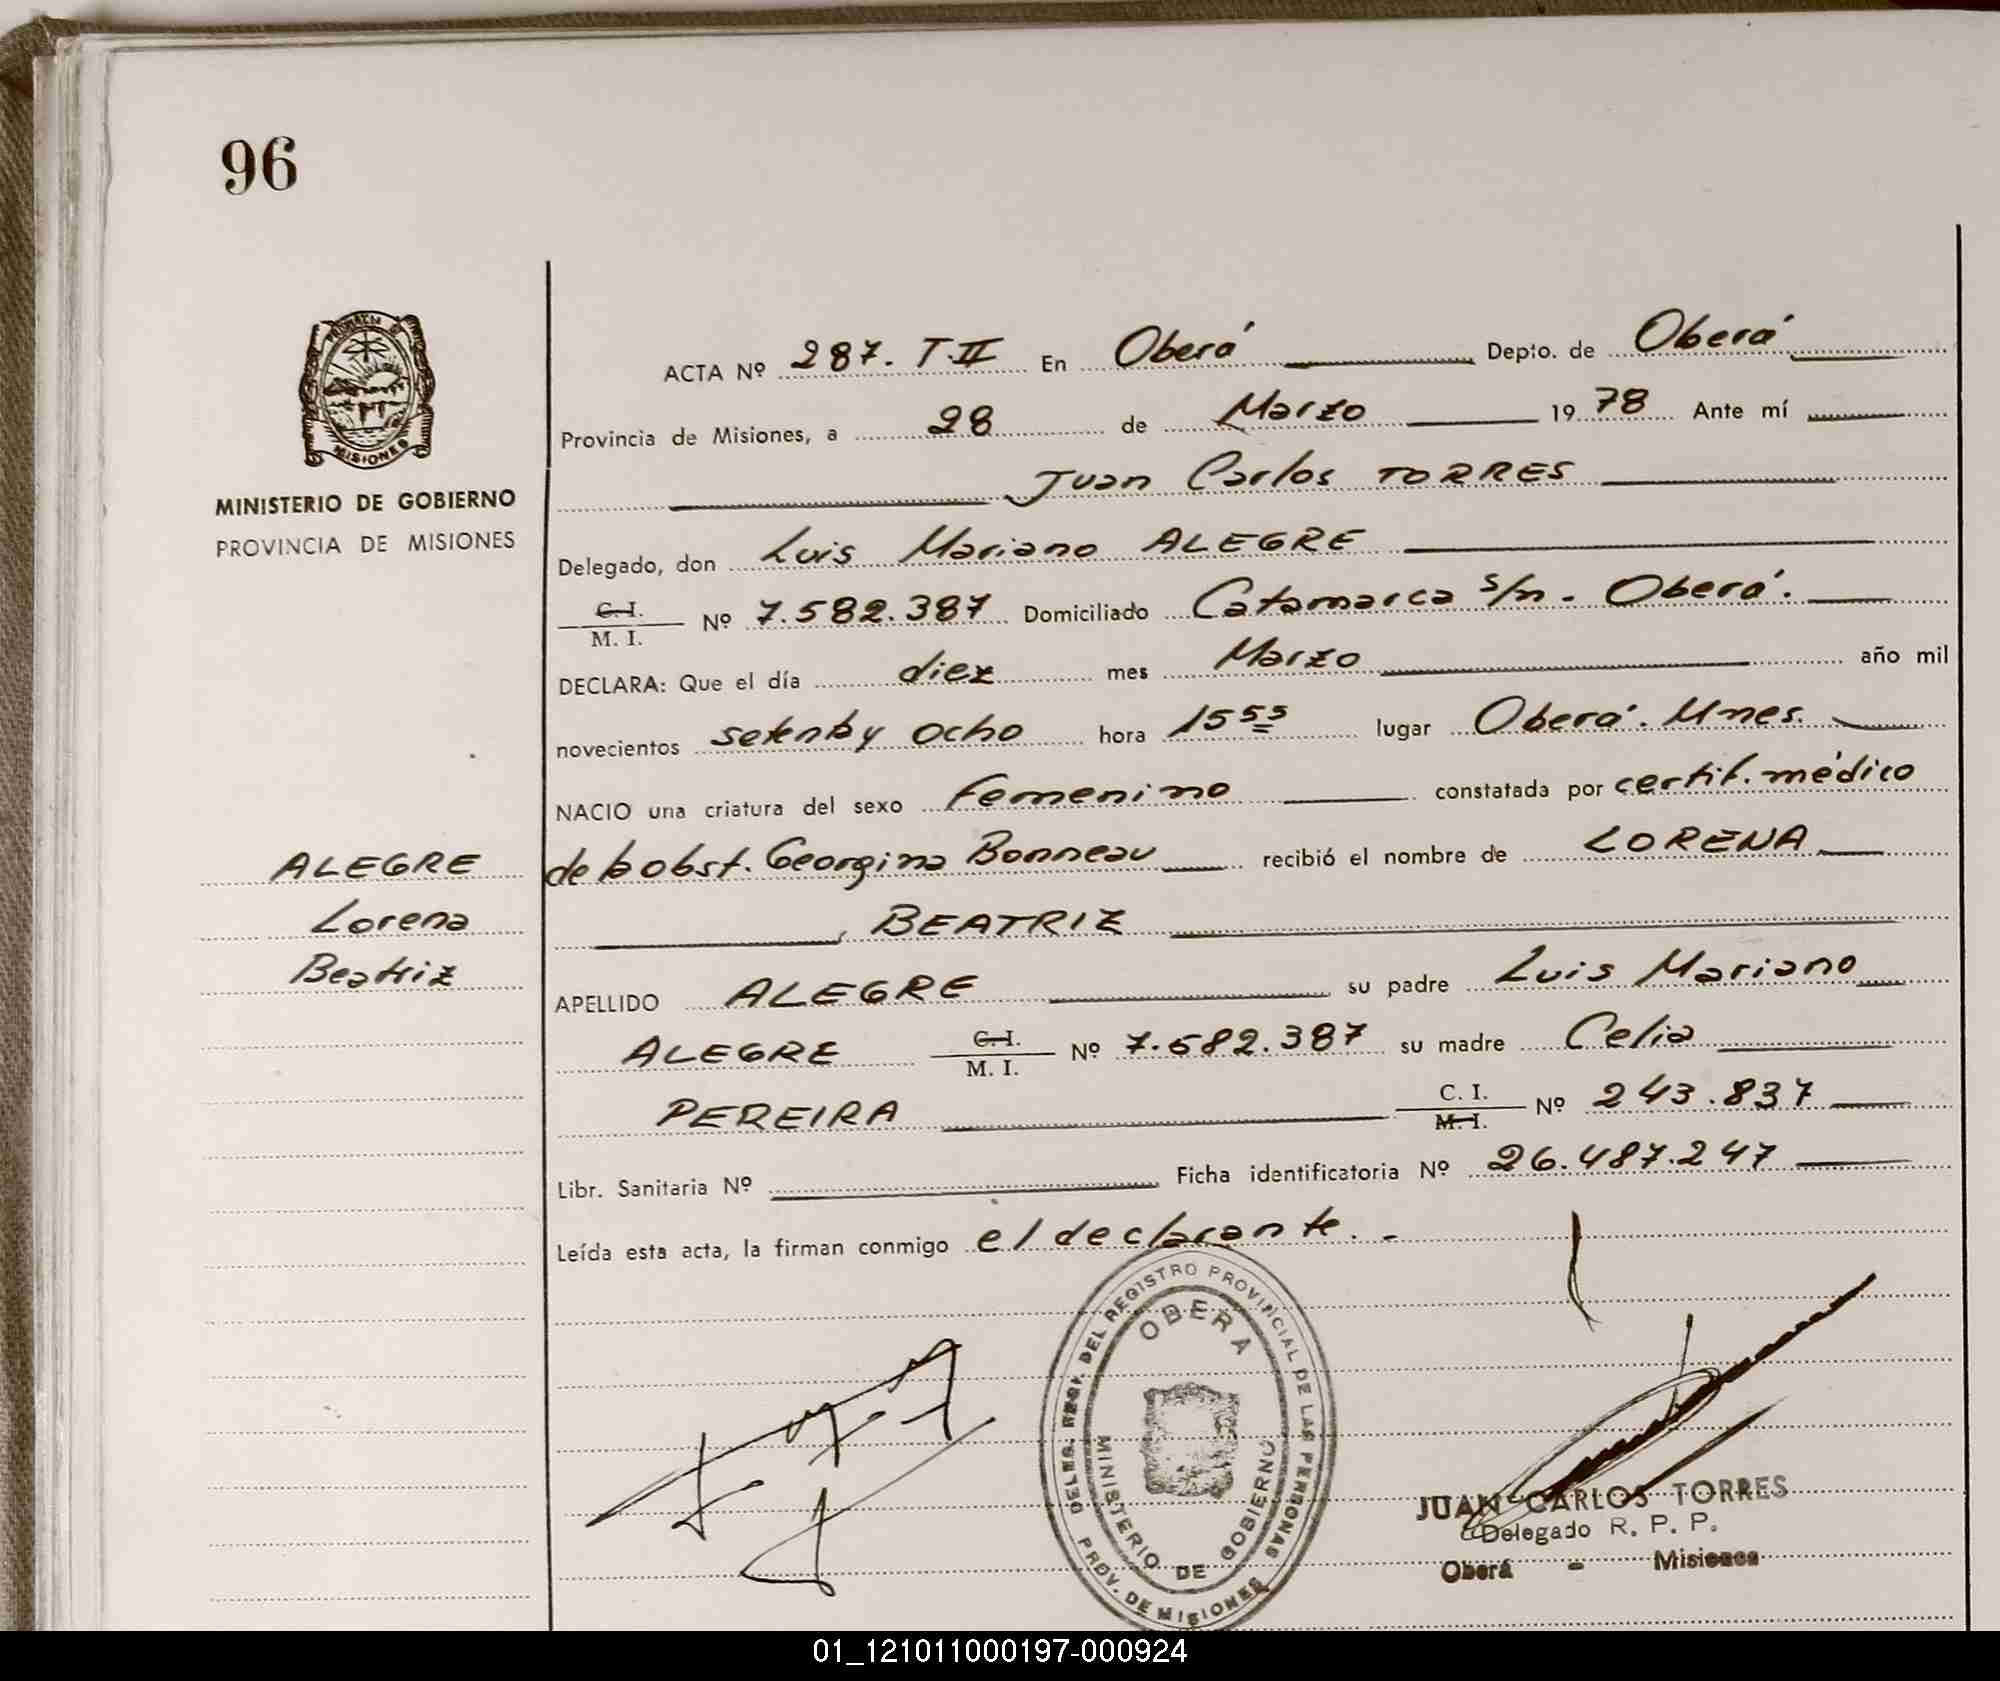 96
MISIONES
MINISTERIO DE GOBIERNO
PROVINCIA DE MISIONES
ACTA Nº 287. T.II En Oberá Depto. de Oberá
Provincia de Misiones, a 28 de Marzo 1978 Ante mí
Juan Carlos TORRES
Delegado, don Luis Mariano ALEGRE
C.I.
M. I. Nº 7.582.387 Domiciliado Catamarca s/n. Oberá.
DECLARA: Que el día diez mes Marzo año mil
novecientos setenta y ocho hora 15 55 lugar Oberá. Mnes.
NACIO una criatura del sexo Femenino constatada por certif. médico
de la obst. Georgina Bonneau recibió el nombre de LORENA
BEATRIZ
APELLIDO ALEGRE su padre Luis Mariano
ALEGRE C.I.
M. I. Nº 7.582.387 su madre Celia
PEREIRA C. I.
M.I. Nº 243.837
Libr. Sanitaria Nº Ficha identificatoria Nº 26.487.247
Leída esta acta, la firman conmigo el declarante. -
ALEGRE
Lorena
Beatriz
DELEG. REGI. DEL REGISTRO PROVINCIAL DE LAS PERSONAS
OBERA
MINISTERIO DE GOBIERNO
PROV. DE MISIONES
JUAN CARLOS TORRES
Delegado R. P. P.
Oberá - Misiones
01_121011000197-000924